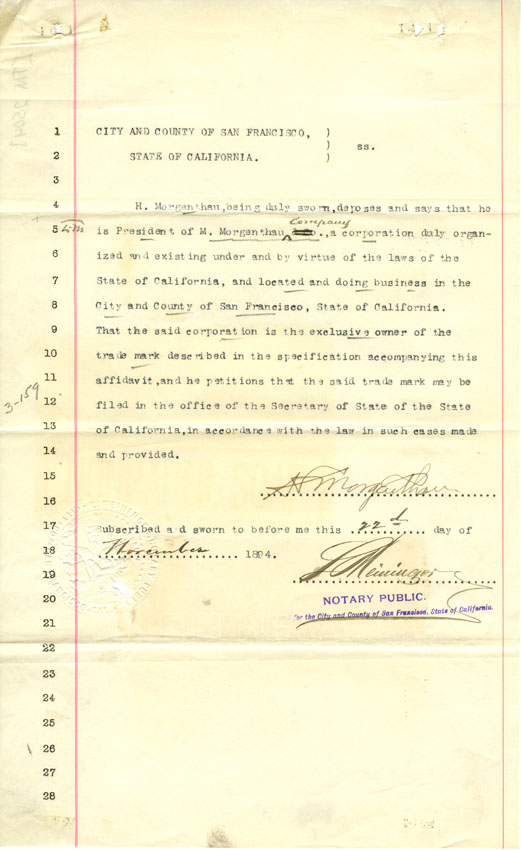 1 CITY AND COUNTY OF SAN FRANCISCO, )
) ss.
2 STATE OF CALIFORNIA. )
3
4 H. Morgenthau, being duly sworn, deposes and says that he
Company
5 is President of M. Morgenthau Co., a corporation duly organ-
6 ized and existing under and by virtue of the laws of the
7 State of California, and located and doing business in the
8 City and County of San Francisco, State of California.
9 That the said corporation is the exclusive owner of the
10 trade mark described in the specification accompanying this
11 affidavit, and he petitions that the said trade mark may be
3-159
12 filed in the office of the Secretary of State of the State
13 of California, in accordance with the law in such cases made
14 and provided.
15 H Morgenthau
16
17 Subscribed and sworn to before me this 22d day of
18 November 1894.
19 L Meininger
20 NOTARY PUBLIC.
21 for the City and County of San Francisco, State of California.
22
23
24
25
26
27
28